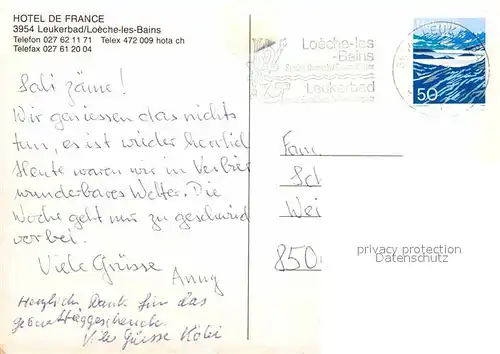 HOTEL DE FRANCE
3954 Leukerbad/Loèche-les-Bains
Telefon 027 62 11 71 Telex 472 009 hota ch
Telefax 027 61 20 04
Loèche-les
-Bains
Leukerbad
HELVETIA
50
Sali zäme!
Wir geniessen das nichts
tun, es ist wieder herrlich
Heute waren wir in Verbier
wunderbares Wetter. Die
Woche geht nur zu geschwind
vorbei.
Viele Grüsse
Anny
Herzlichen Dank für das
geburtstaggeschenk.
Viele Grüsse
Fam
Sch
Wei
850
privacy protection
Datenschutz